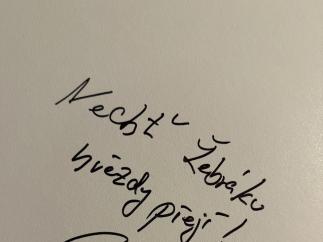 Nechť Žebráku
hvězdy přejí!